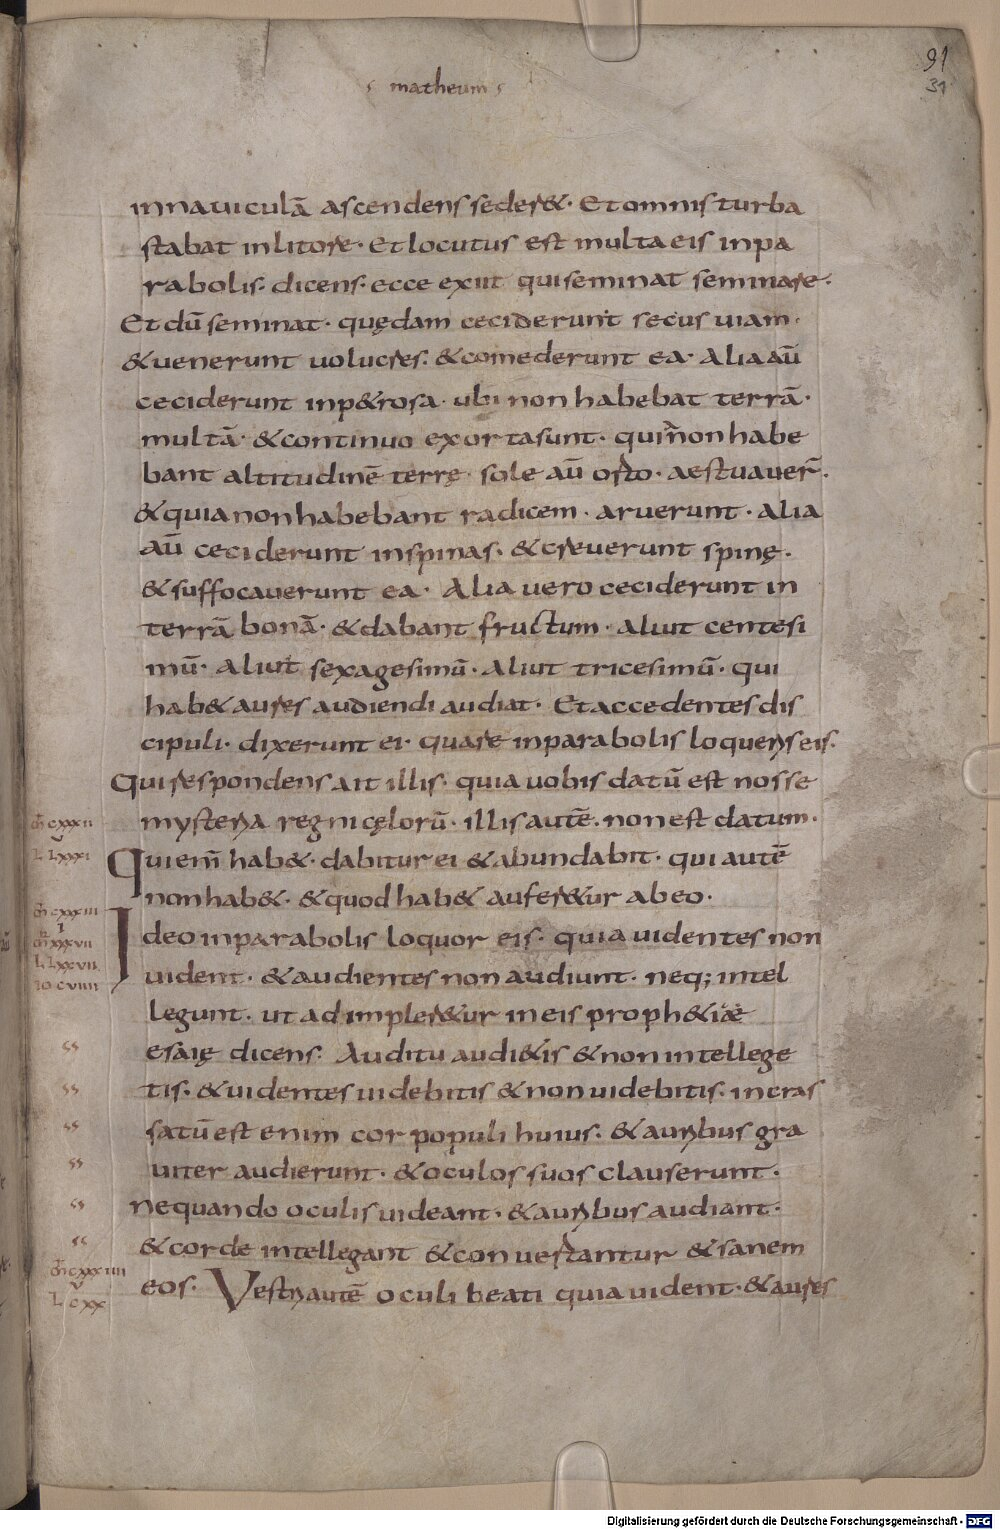 matheum
91
31
in nauiculā ascendens seder&. Et omnis turba
stabat in litore. Et locutus est multa eis in pa
rabolis. dicens. ecce exiit qui seminat seminare.
Et dū seminat. quędam ceciderunt secus uiam.
& uenerunt uolucres. & comederunt ea. Alia aū
ceciderunt in p&rosa. ubi non habebat terrā.
multā. & continuo exorta sunt. qui n̄ non habe
bant altitudinē terrę. sole aū orto. aestuauer̄.
& quia non habebant radicem. aruerunt. alia
aū ceciderunt in spinas. & creuerunt spinę.
& suffocauerunt ea. Alia uero ceciderunt in
terrā bonā. & dabant fructum. aliut centesi
mū. aliut sexagesimū. aliut tricesimū. qui
hab& aures audiendi audiat. Et accedentes dis
cipuli. dixerunt ei. quare in parabolis loqueris eis.
Qui respondens ait illis. quia uobis datū est nosse
mysteria regni cęlorū. illis autē. non est datum.
Qui eni̅ hab&. dabitur ei & abundabit. qui autē
non hab&. & quod hab& aufer&ur ab eo.
Ideo in parabolis loquor eis. quia uidentes non
uident. & audientes non audiunt. neq; intel
legunt. ut adimpler&ur in eis proph&iae
esaię dicens. Auditu audi&is & non intellege
tis. & uidentes uidebitis & non uidebitis. incras
satū est enim cor populi huius. & auribus gra
uiter audierunt. & oculos suos clauserunt.
nequando oculis uideant. & auribus audiant.
& corde intellegant & conuertantur & sanem
eos. Vestri autē oculi beati quia uident. & aures
m̄ cxxxii
v
L Lxxxi
m̄ cxxxiii
I
m̄ xxxvii
L Lxxvii
io cviiii
m̄ cxxxiiii
v
L cxx
Digitalisierung gefördert durch die Deutsche Forschungsgemeinschaft - DFG